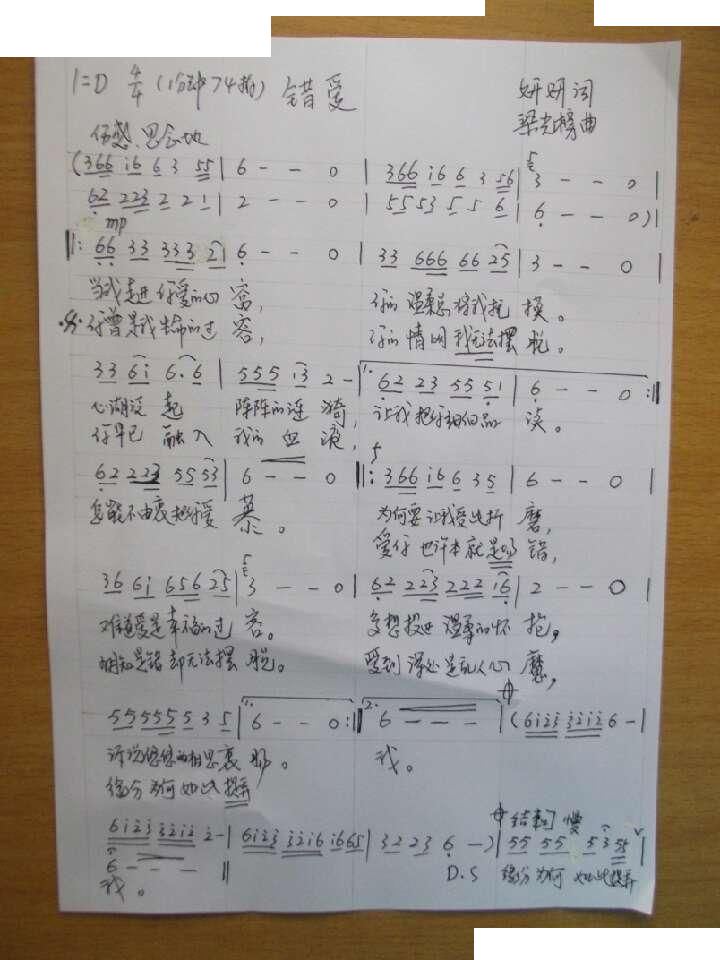 1=D 4/4 (1分钟74拍) 错爱 妍妍词
梁光榜曲
伤感、思念地
(366 i6 6 3 55 | 6 - - 0 | 366 i6 6 3 56 | 3 - - 0 |
62 223 2 2 1 | 2 - - 0 | 55 53 5 5 6 | 6 - - 0 )|
mp
‖: 66 33 333 21 | 6 - - 0 | 33 666 66 25 | 3 - - 0 |
当我走进你爱的心窝, 你的温柔总将我抚摸。
你曾是我生命的过客, 你的情网我无法摆脱。
33 6i 6·6 | 555 i3 2 - | 1. 62 23 55 51 | 6 - - 0 :‖
心湖泛起 阵阵的涟漪, 让我把你细细品读。
你早已融入我的血液,
62 223 55 53 | 6 - - 0 ‖: 366 i6 6 35 | 6 - - 0 |
怎能不由衷把你爱慕。 为何要让我受此折磨,
爱你也许本就是个错,
36 6i 656 25 | 3 - - 0 | 62 223 222 i6 | 2 - - 0 |
难道爱是幸福的过客。 多想投进温柔的怀抱,
明知是错却无法摆脱。 爱到深处是乱人心魔,
55 555 5 3 5 | 1. 6 - - 0 :‖ 2. 6 - - - | (6i23 32i2 6 - |
诉说悠悠的相思 我。
缘分为何如此捉弄
6i23 32i2 2 - | 6i23 32i6 i6 65 | 3 2 2 3 6 - ) | 结束句 慢 55 55 5 3 55
6 - - - ‖ D.S 缘分为何如此捉弄
我。